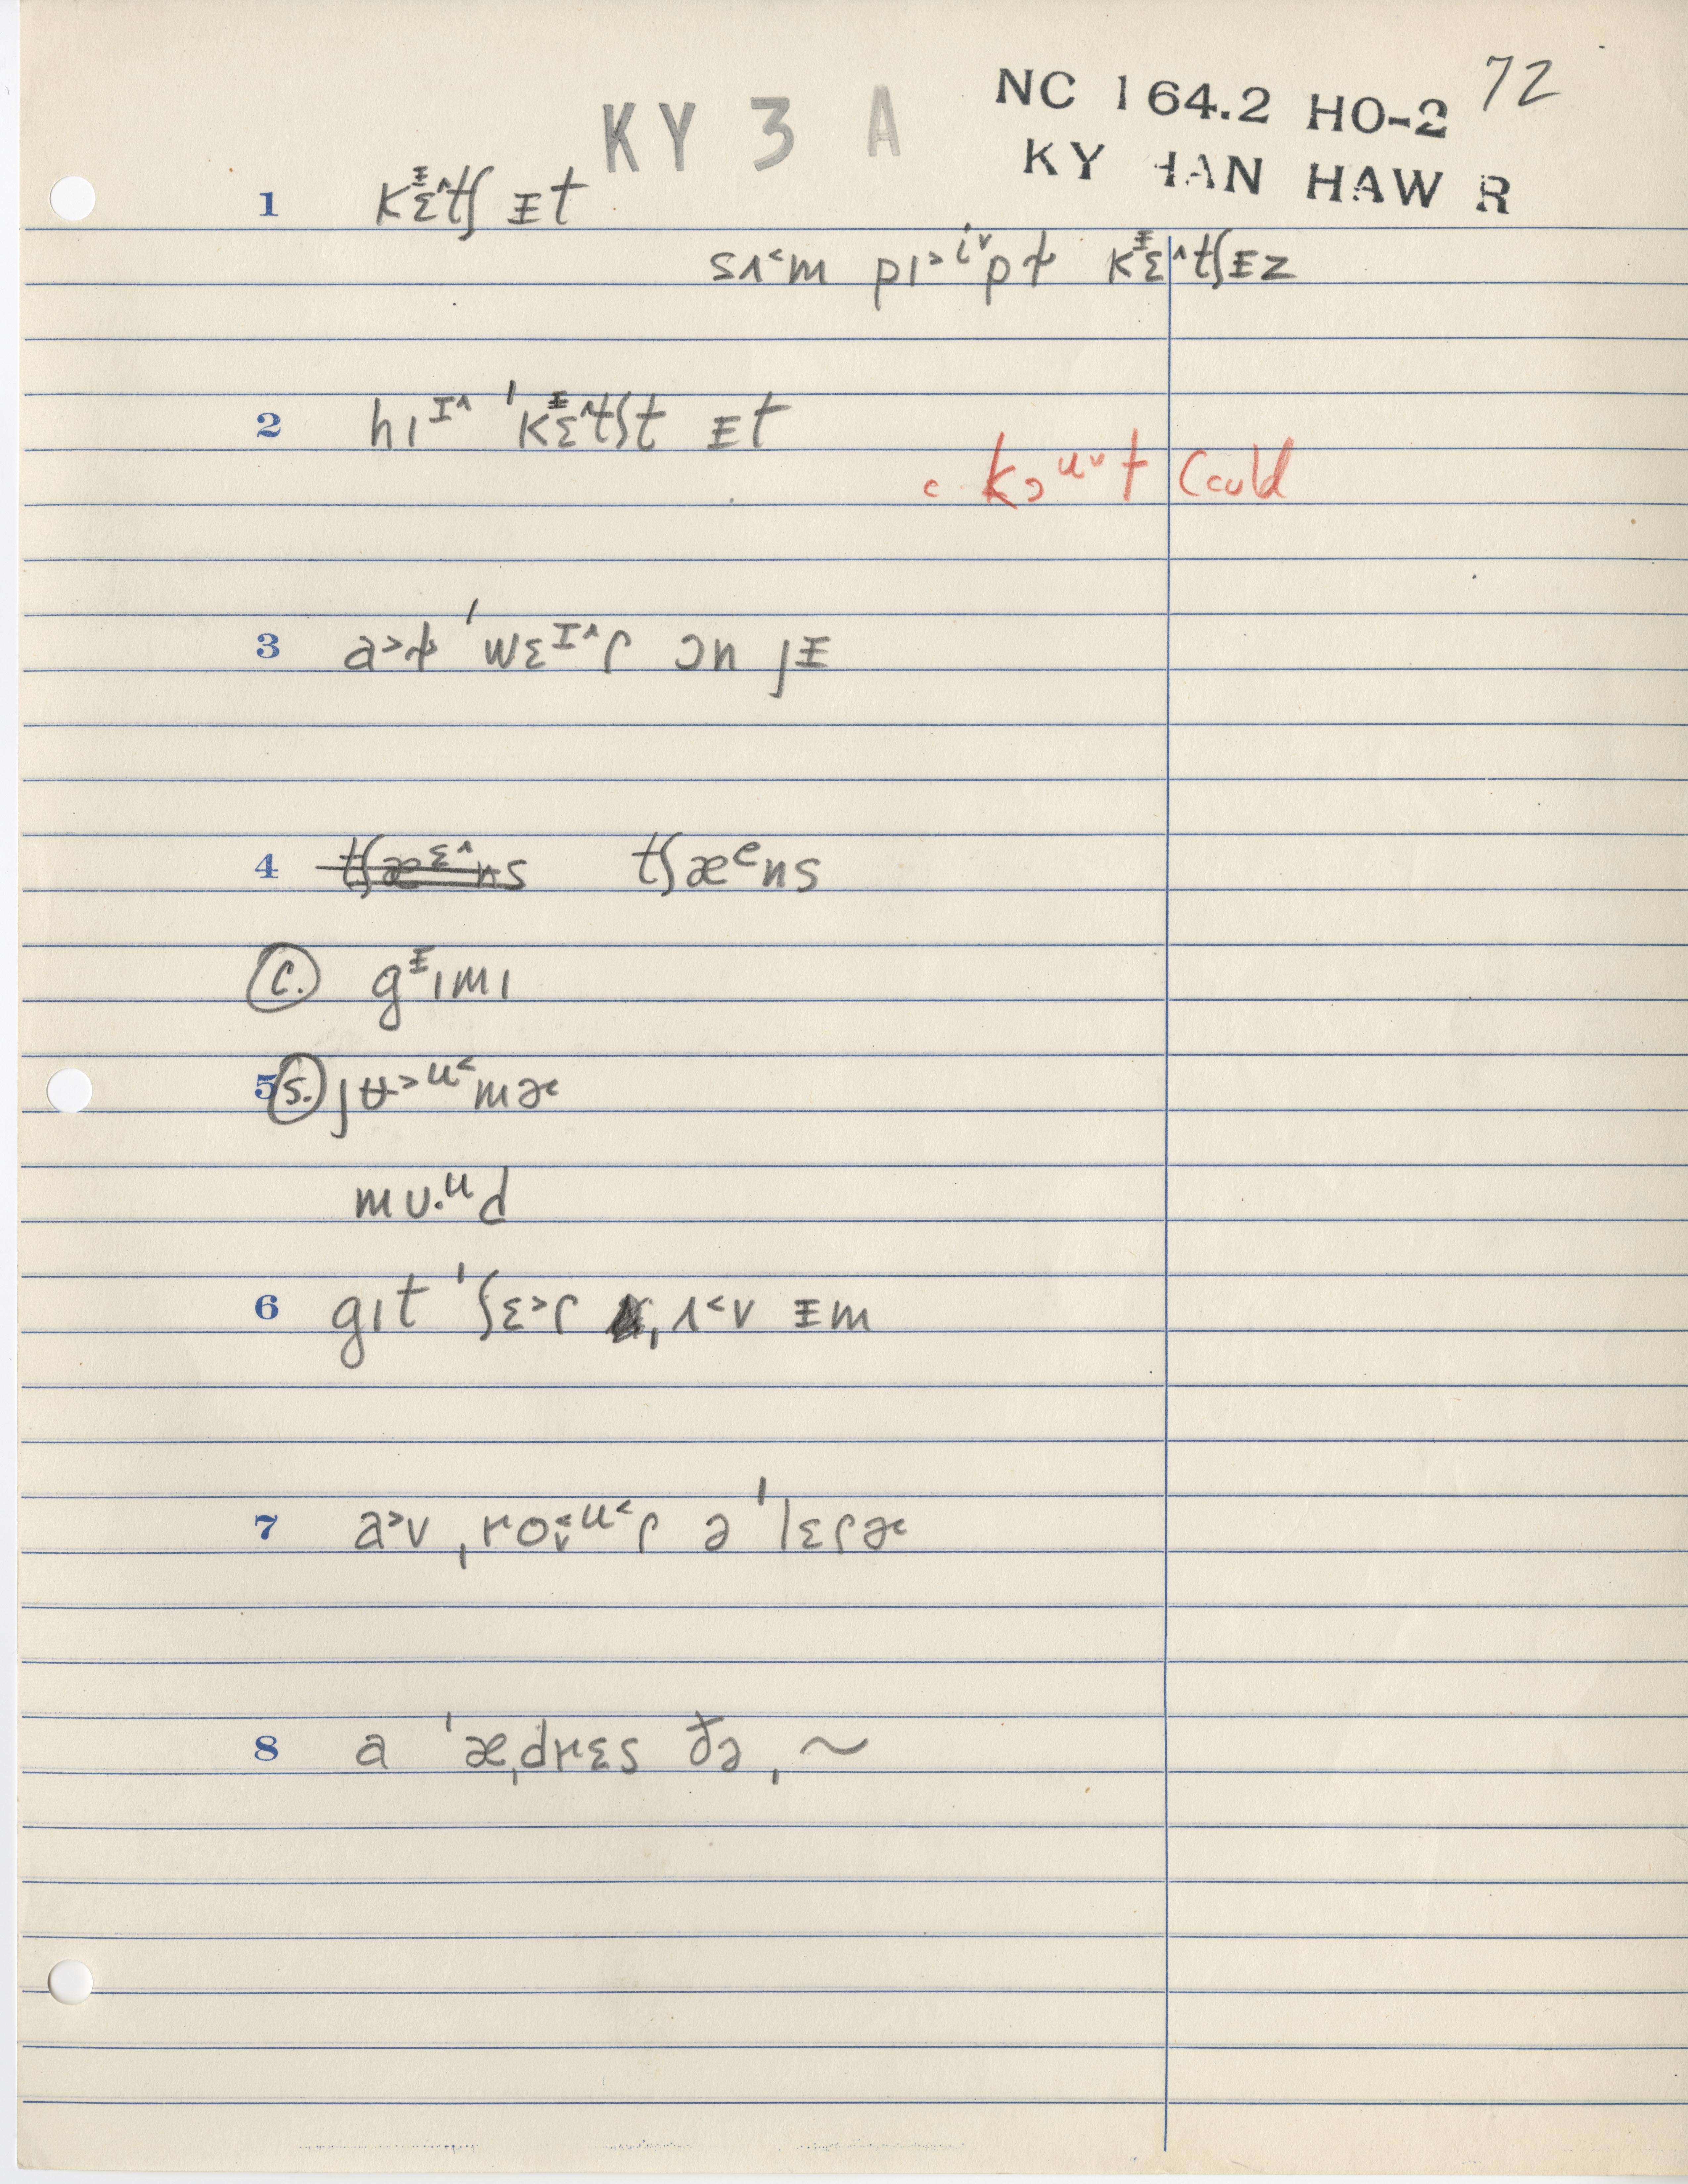 NC 164.2 HO-2 72
KY 3 A
KY HAN HAW R
1 kɛᵻ˄tʃ ᵻt
sʌ˂m pɪ˃ⁱ˅pɫ kɛᵻ˄tʃᵻz
2 hɪᴵ˄ ˈkɛᵻ˄tʃt ᵻt
c kɔᵘ˅t could
3 a˃ɫ ˈwɛᴵ˄ɾ ɔn jᵻ
4 tʃæᵋ˄ns tʃæᵉns
c. gᵻɪmɪ
5 s. jʉ˃ᵘ˂mɚ
mu·ᵘd
6 gɪt ˈʃɛ˃ɾ ˌʌ˂v ᵻm
7 a˃v ˌro˂˅ᵘ˂ɾ ə ˈlɛɾɚ
8 a ˈæˌdrɛs ðə ˌ~